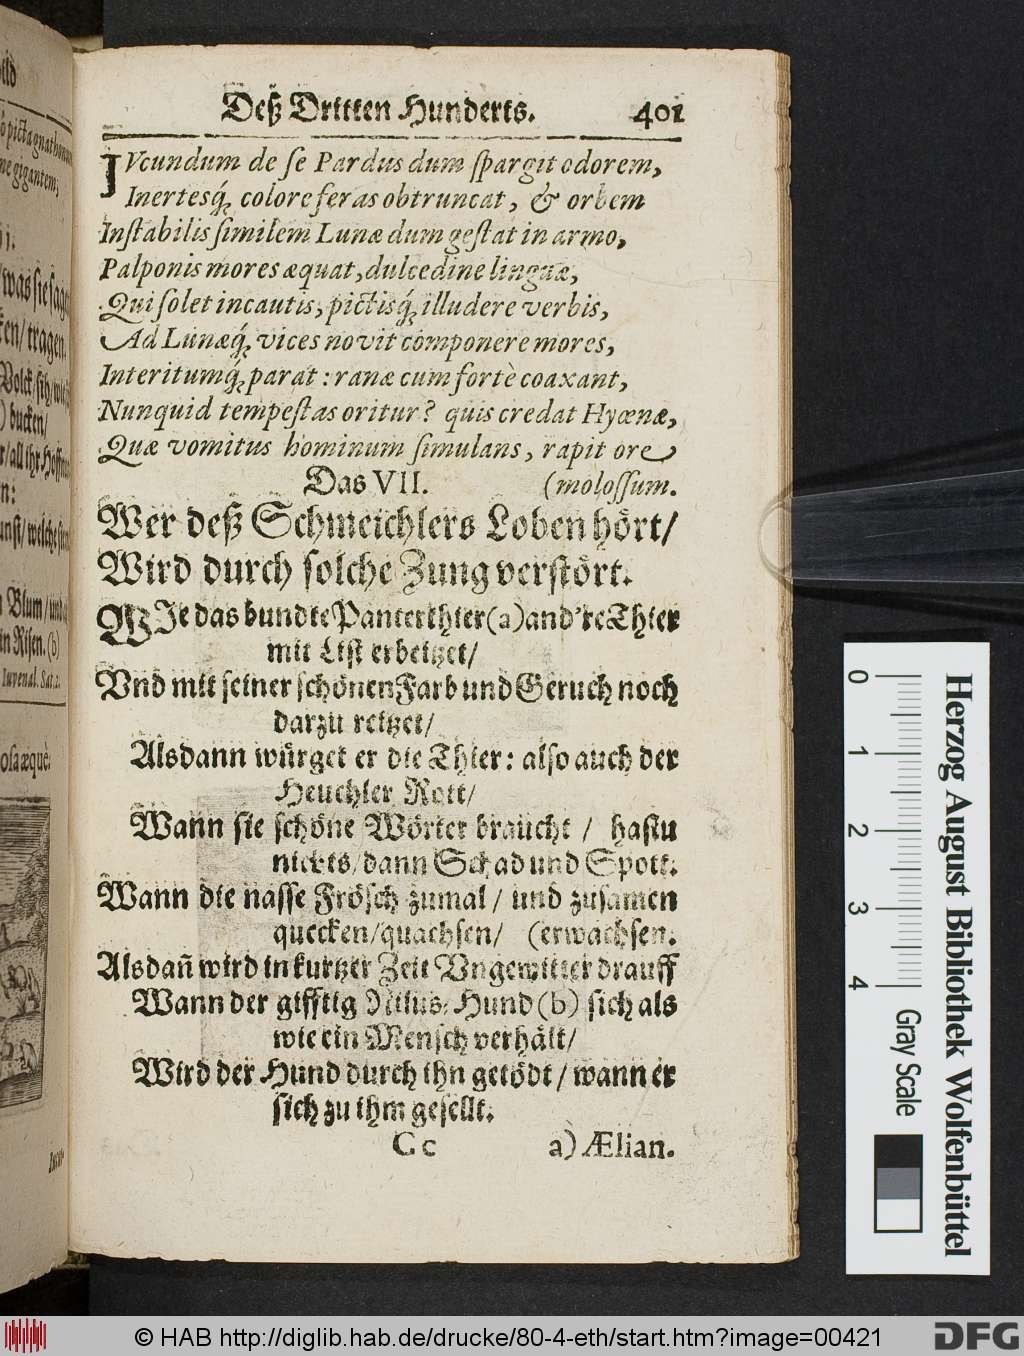 Deß Dritten Hunderts. 401
IVcundum de se Pardus dum spargit odorem,
Inertesq́; colore feras obtruncat, & orbem
Instabilis similem Lunæ dum gestat in armo,
Palponis mores æquat, dulcedine linguæ,
Qui solet incautis, pictisq́; illudere verbis,
Ad Lunæq́; vices novit componere mores,
Interitumq́; parat: ranæ cum fortè coaxant,
Nunquid tempestas oritur? quis credat Hyœnæ,
Quæ vomitus hominum simulans, rapit ore
Das VII. (molossum.
Wer deß Schmeichlers Loben hört/
Wird durch solche Zung verstört.
WIe das bundte Panterthier (a) and're Thier
mit List erbeitzet/
Vnd mit seiner schönen Farb und Geruch noch
darzu reitzet/
Alsdann würget er die Thier: also auch der
Heuchler Rott/
Wann sie schöne Wörter braucht / hastu
nichts/ dann Schad und Spott.
Wann die nasse Frösch zumal / und zusamen
quecken/ quachsen/ (erwachsen.
Alsdañ wird in kurtzer Zeit Vngewitter drauff
Wann der gifftig Nilus-Hund (b) sich als
wie ein Mensch verhält/
Wird der Hund durch ihn getödt / wann er
sich zu ihm gesellt.
Cc a) Ælian.
gigantem;
was sie
ken/ tragen.
) bucken/
Blum/
in Risen. (b)
Iuvenal. Sat. 2.
æquè.
Herzog August Bibliothek Wolfenbüttel
0 1 2 3 4
Gray Scale
© HAB http://diglib.hab.de/drucke/80-4-eth/start.htm?image=00421
DFG